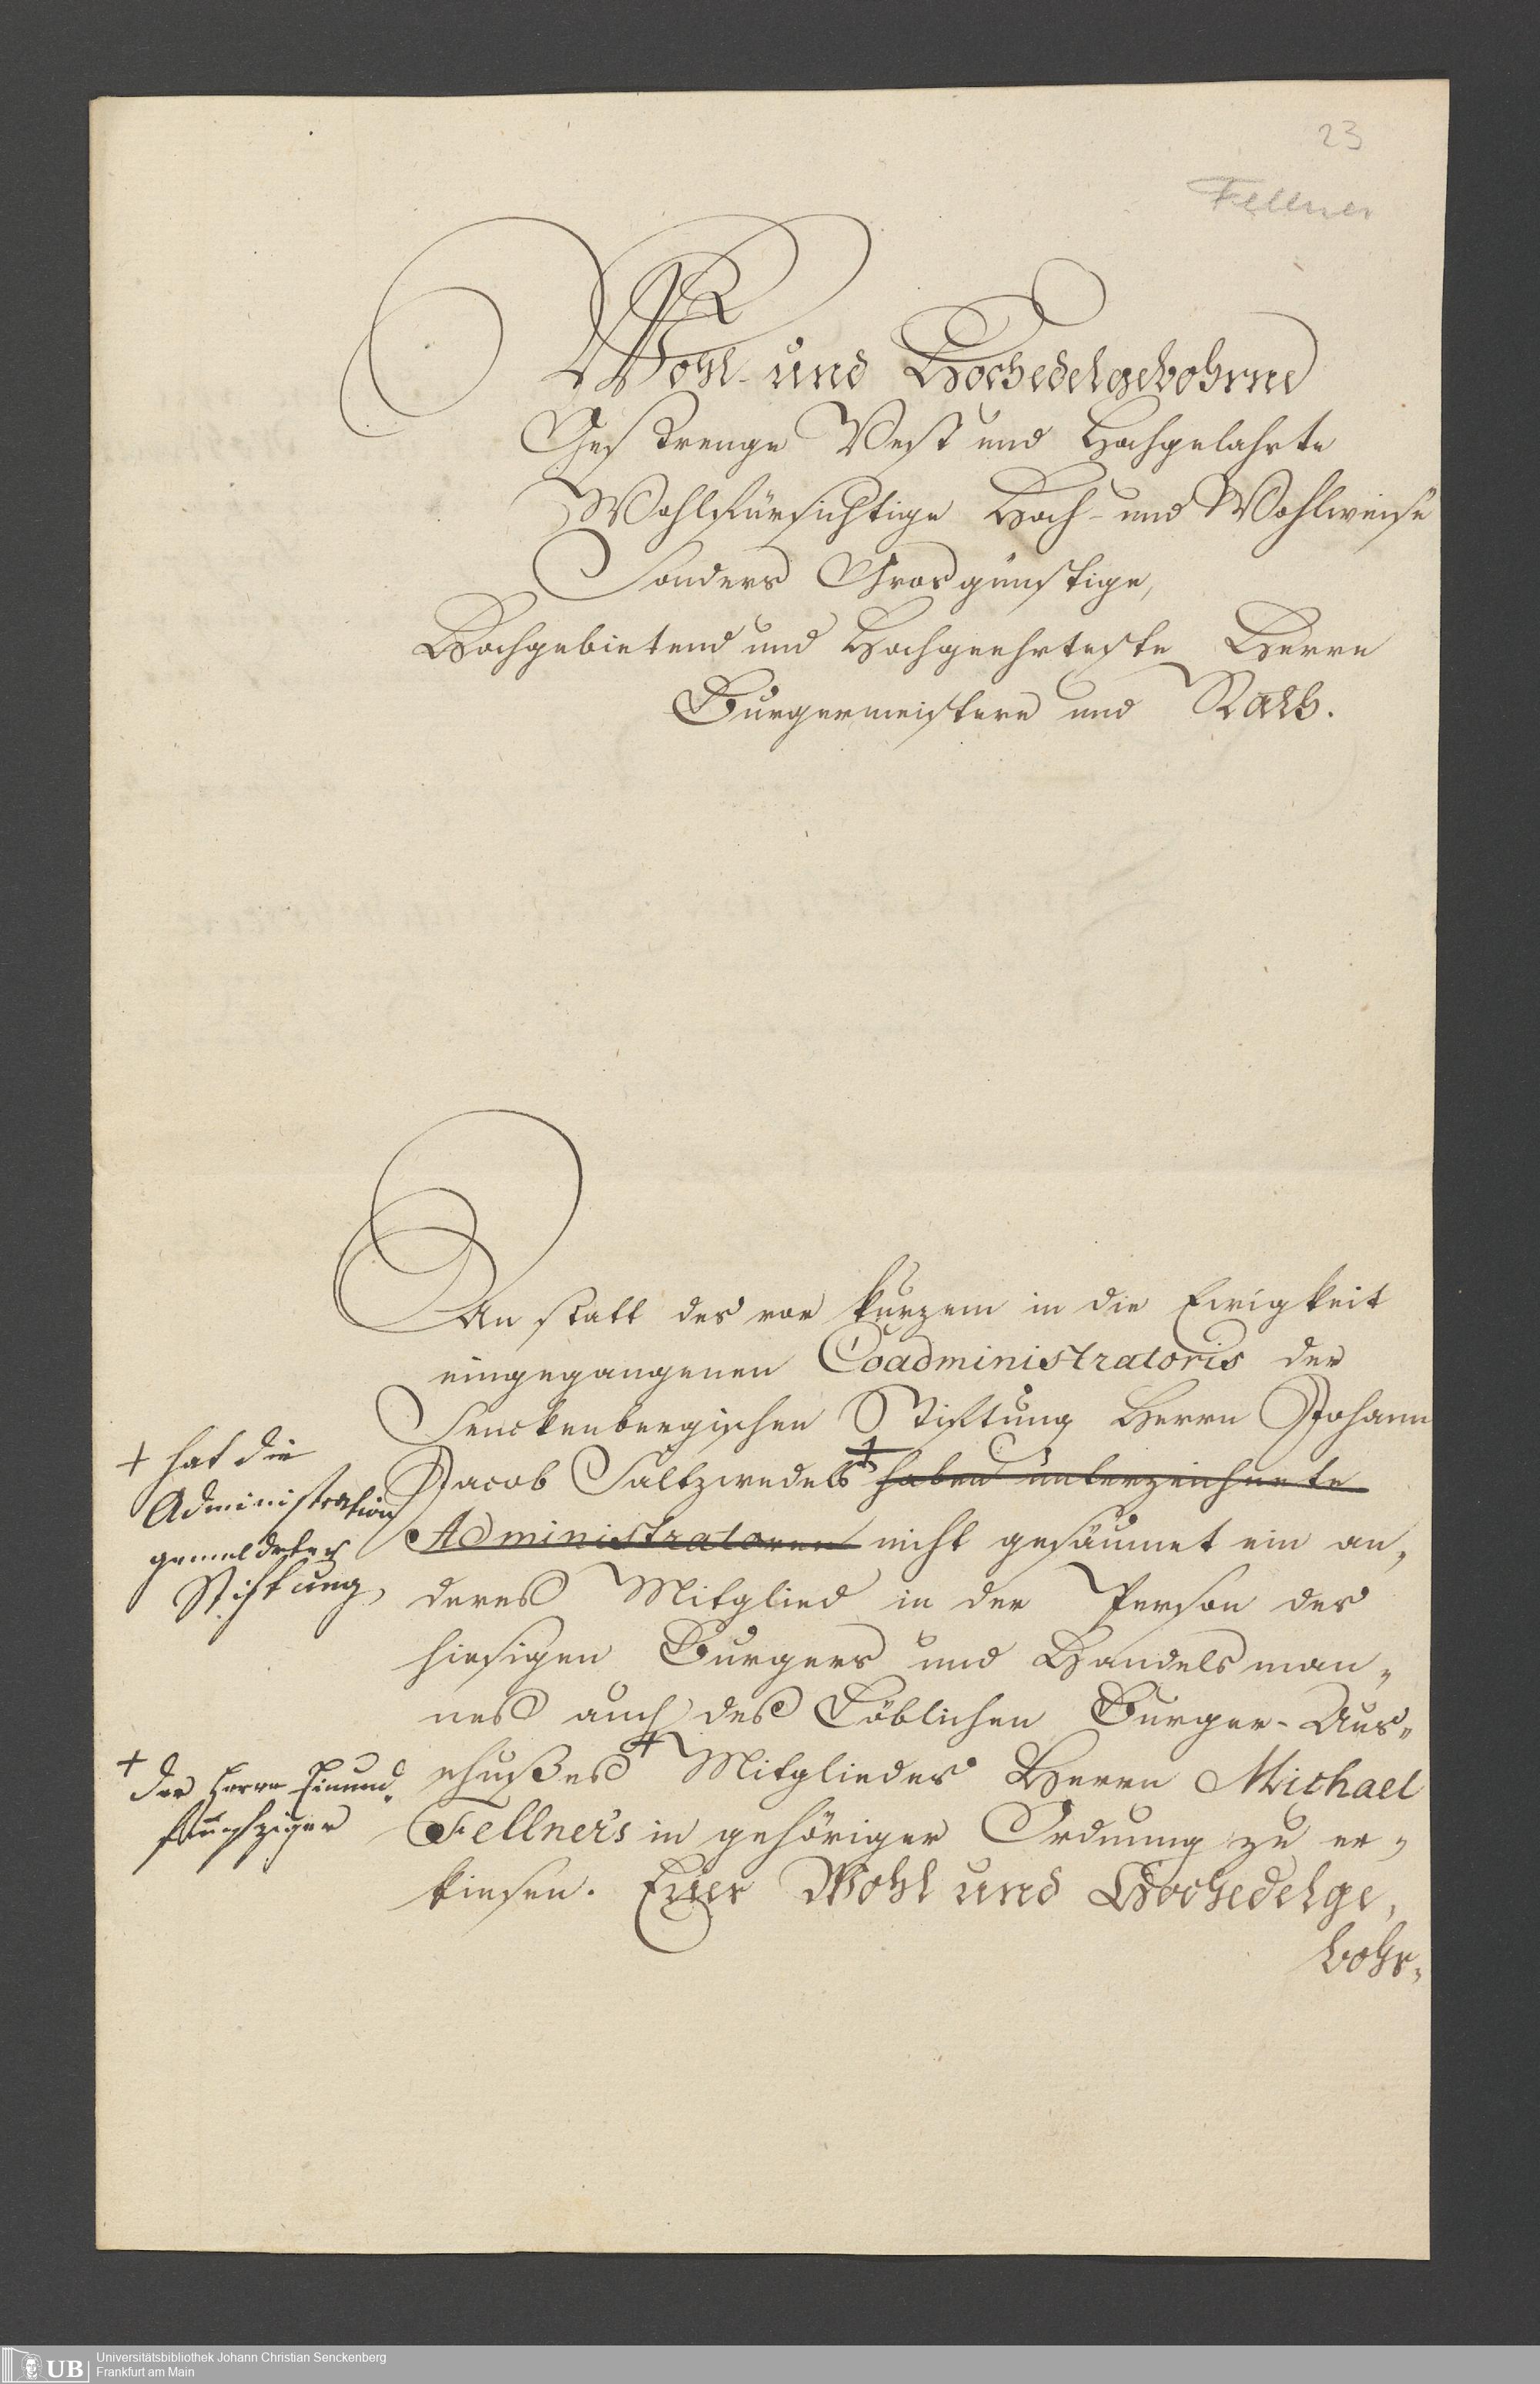 23
Fellner
Wohl- und Hochedelgebohrne
Gestrenge Vest und Hochgelahrte
Wohlfürsichtige Hoch- und Wohlweise
Sonders Grosgünstige,
Hochgebietend und Hochgeehrteste Herrn
Burgermeistere und Rath.
An statt des vor kurzem in die Ewigkeit
eingegangenen Coadministratoris der
Senckenbergischen Stiftung Herrn Johann
Jacob Saltzwedels + haben unterzeichnete
Administratoren nicht gesäumet ein an,
deres Mitglied in der Person des
hiesigen Burgers und Handelsman,
nes auch des Löblichen Burger-Aus,
schußes + Mitgliedes Herrn Michael
Fellner's in gehöriger Ordnung zu er,
kiesen. Euer Wohl und Hochedelge,
bohr,
+ hat die
Administration
gemeldeter
Stiftung,
+
der Herrn Einund,
funfziger
UB
Universitätsbibliothek Johann Christian Senckenberg
Frankfurt am Main